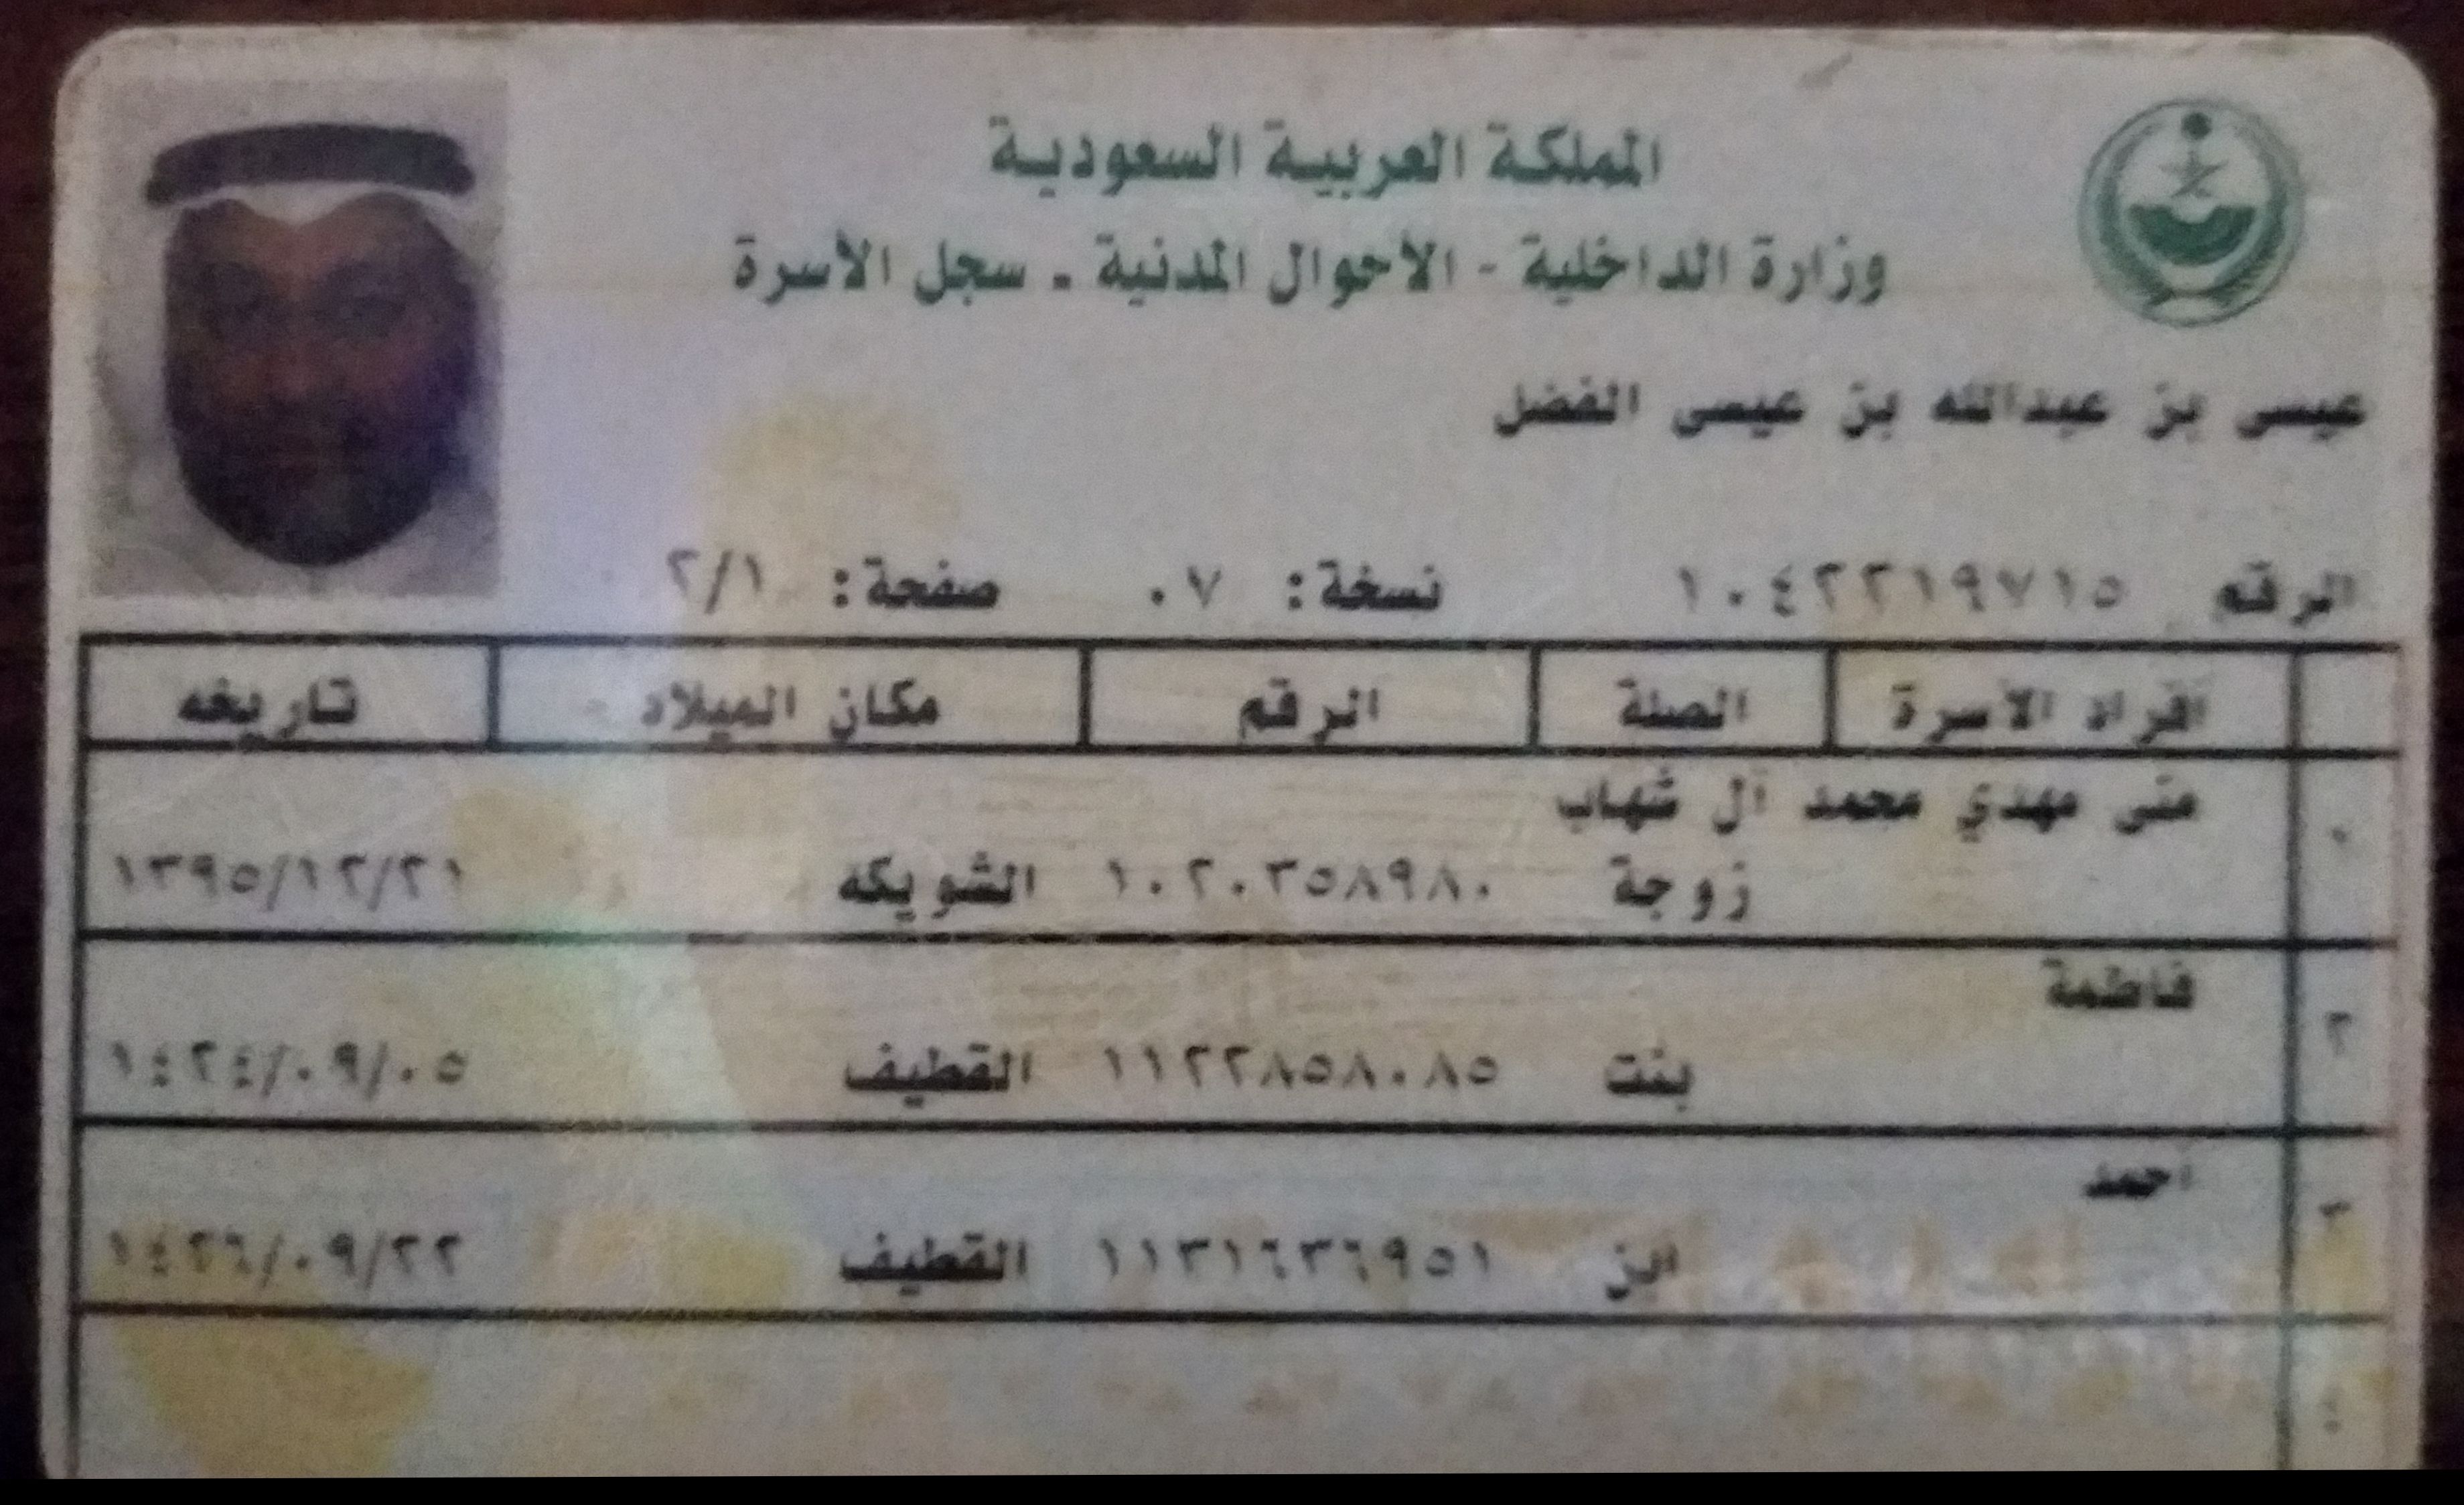 المملكة العربية السعودية
وزارة الداخلية - الأحوال المدنية - سجل الأسرة
عيسى بن عبدالله بن عيسى الفضل
الرقم ١٠٤٢٢١٩٧١٥ نسخة: ٠٧ صفحة: ٢/١
افراد الاسرة الصلة الرقم مكان الميلاد تاريخه
منى مهدي محمد آل شهاب
زوجة ١٠٢٠٣٥٨٩٨٠ الشويكه ١٣٩٥/١٢/٢١
فاطمة
٢ بنت ١١٢٢٨٥٨٠٨٥ القطيف ١٤٢٤/٠٩/٠٥
احمد
٣ ابن ١١٣١٦٣٦٩٥١ القطيف ١٤٢٦/٠٩/٢٢